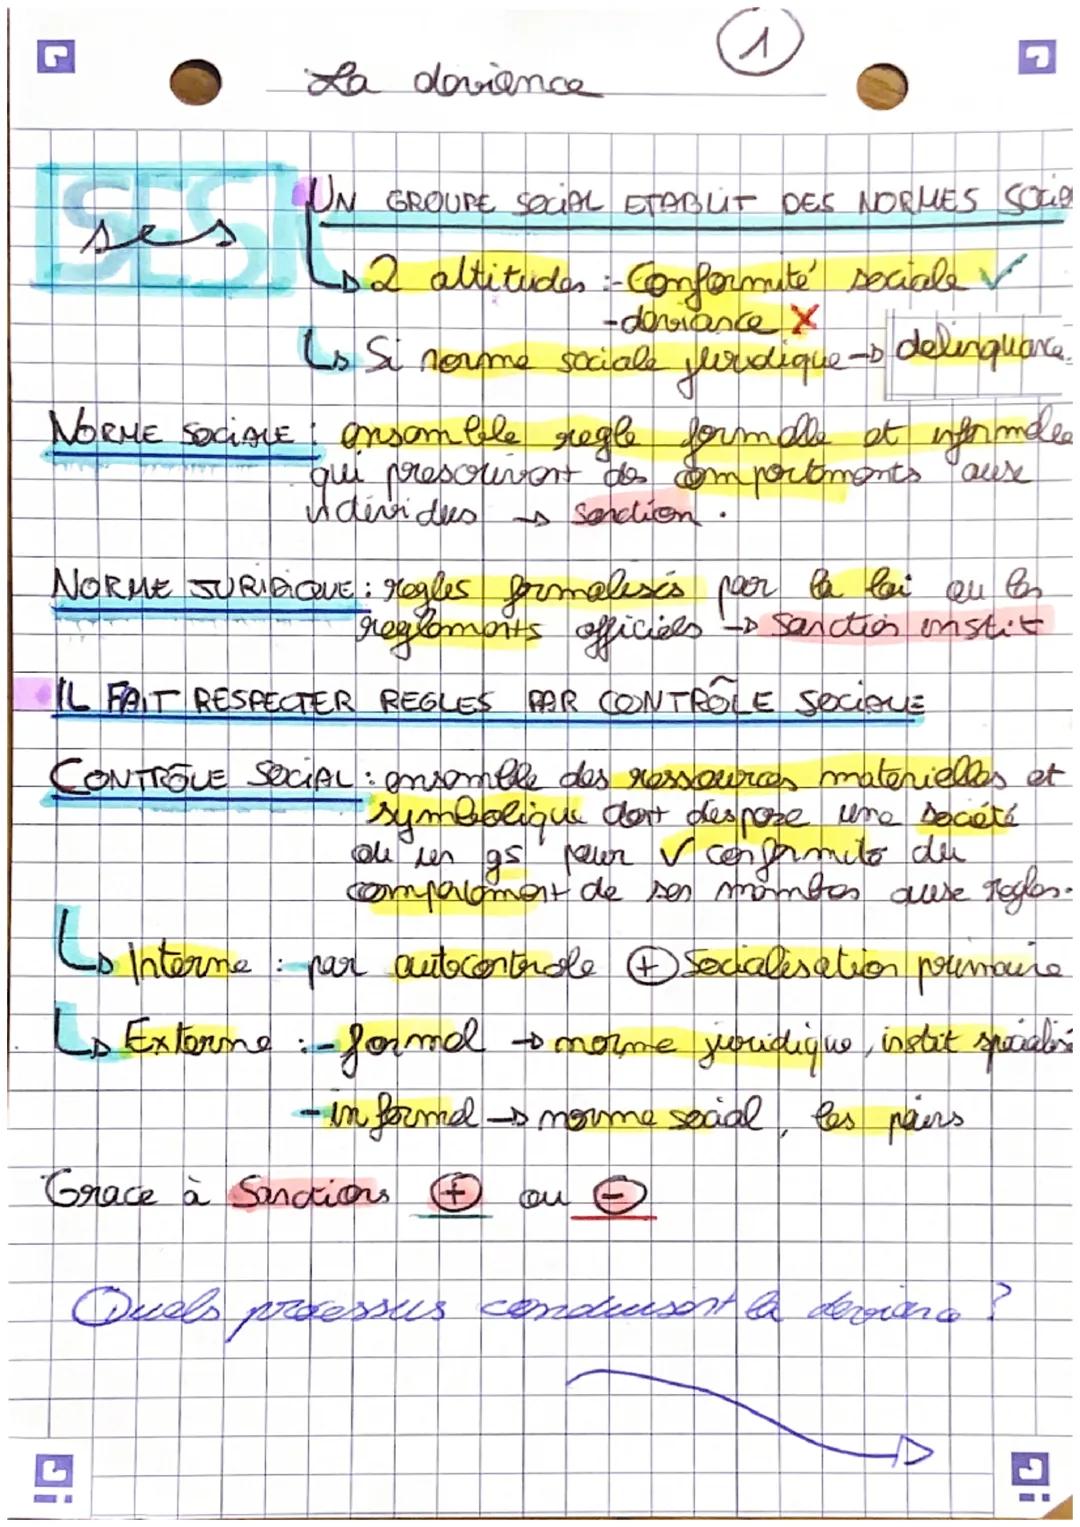 1
La deviance
SES
ses
UN GROUPE SOCIAL ETABLIT DES NORMES
↳ 2 attitudes : - Conformité sociale ✓
- deviance X
↳ Si norme sociale juridique → delinquance
NORME SOCIALE : ensemble regle formelle et informelle
qui prescrivent des comportements aux
individus → sanction.
NORME JURIDIQUE : regles formalisés par la loi ou les
reglements officiels → Sanction instit
IL FAIT RESPECTER REGLES PAR CONTRÔLE SOCIALE
CONTRÔLE SOCIAL : ensemble des ressources materielles et
symbolique dont dispose une société
ou un gs pour √ conformité du
comportement de ses membres aux regles.
↳ Interne : par autocontrole (+) Socialisation primaire
↳ Externe : - formel → norme juridique, instit
- informel → norme social, les pairs
Grace à Sanctions (+) ou (-)
Quels processus conduisent la deviance ?